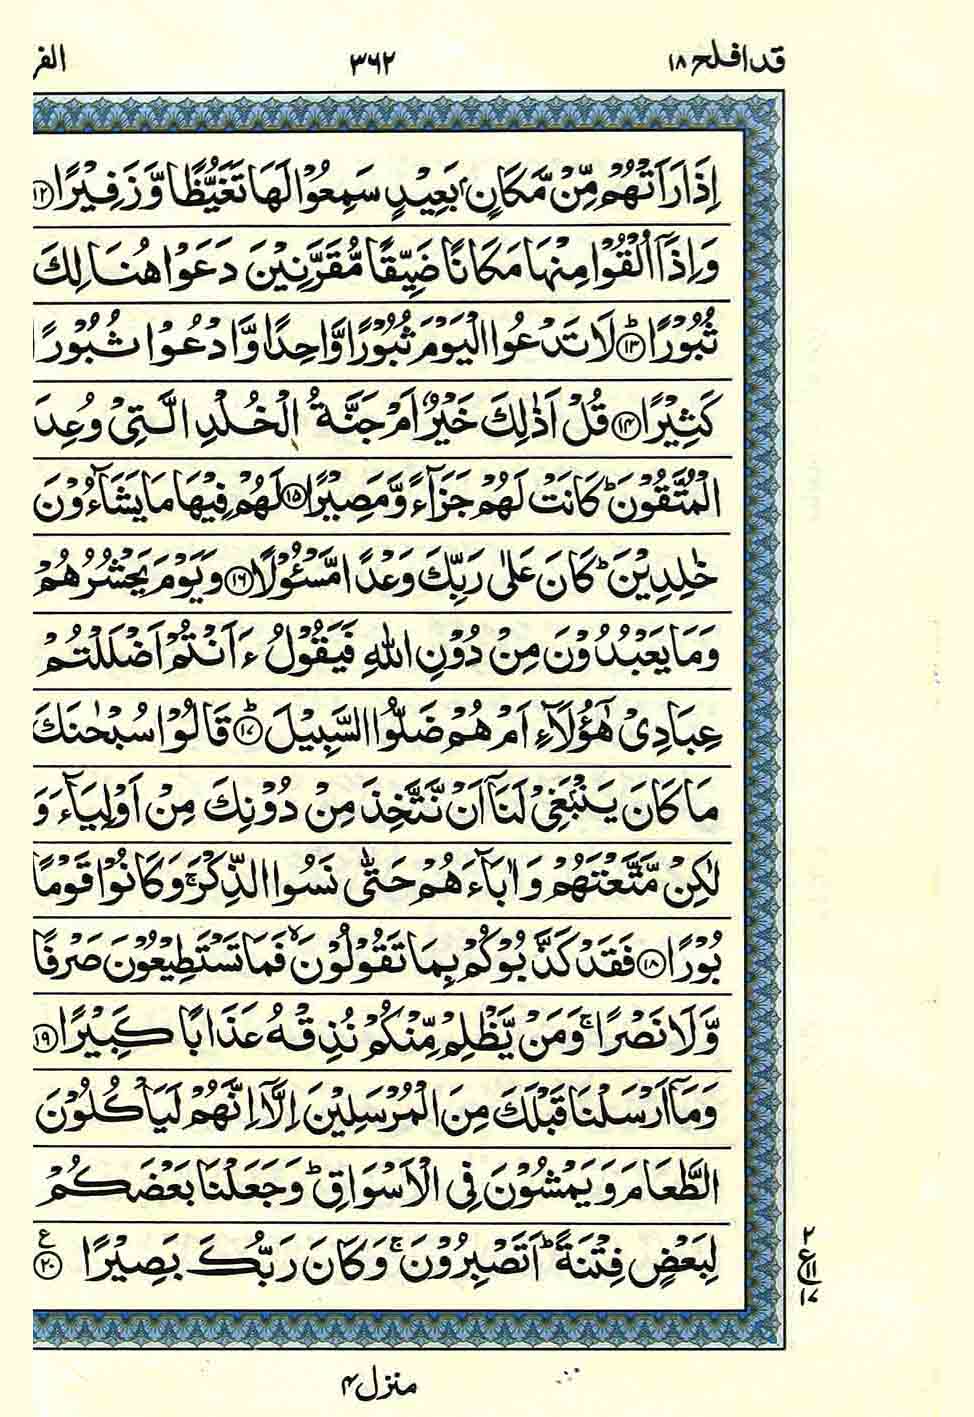 قد افلح ۱۸ ۳۶۲ الفر
اِذَا رَاَتْهُمْ مِّنْ مَّكَانٍۭ بَعِيْدٍ سَمِعُوْا لَهَا تَغَيُّظًا وَّ زَفِيْرًا ﴿۱۲﴾
وَ اِذَاۤ اُلْقُوْا مِنْهَا مَكَانًا ضَيِّقًا مُّقَرَّنِيْنَ دَعَوْا هُنَالِكَ
ثُبُوْرًا ؕ﴿۱۳﴾ لَا تَدْعُوا الْيَوْمَ ثُبُوْرًا وَّاحِدًا وَّ ادْعُوْا ثُبُوْرًا
كَثِيْرًا ﴿۱۴﴾ قُلْ اَذٰلِكَ خَيْرٌ اَمْ جَنَّةُ الْخُلْدِ الَّتِیْ وُعِدَ
الْمُتَّقُوْنَ ؕ كَانَتْ لَهُمْ جَزَآءً وَّ مَصِيْرًا ﴿۱۵﴾ لَهُمْ فِيْهَا مَا يَشَآءُوْنَ
خٰلِدِيْنَ ؕ كَانَ عَلٰی رَبِّكَ وَعْدًا مَّسْـُٔوْلًا ﴿۱۶﴾ وَ يَوْمَ يَحْشُرُهُمْ
وَ مَا يَعْبُدُوْنَ مِنْ دُوْنِ اللّٰهِ فَيَقُوْلُ ءَاَنْتُمْ اَضْلَلْتُمْ
عِبَادِیْ هٰۤؤُلَآءِ اَمْ هُمْ ضَلُّوا السَّبِيْلَ ؕ﴿۱۷﴾ قَالُوْا سُبْحٰنَكَ
مَا كَانَ يَنْۢبَغِیْ لَنَاۤ اَنْ نَّتَّخِذَ مِنْ دُوْنِكَ مِنْ اَوْلِيَآءَ وَ
لٰكِنْ مَّتَّعْتَهُمْ وَ اٰبَآءَهُمْ حَتّٰی نَسُوا الذِّكْرَ ۚ وَ كَانُوْا قَوْمًۢا
بُوْرًا ﴿۱۸﴾ فَقَدْ كَذَّبُوْكُمْ بِمَا تَقُوْلُوْنَ ۙ فَمَا تَسْتَطِيْعُوْنَ صَرْفًا
وَّ لَا نَصْرًا ۚ وَ مَنْ يَّظْلِمْ مِّنْكُمْ نُذِقْهُ عَذَابًا كَبِيْرًا ﴿۱۹﴾
وَ مَاۤ اَرْسَلْنَا قَبْلَكَ مِنَ الْمُرْسَلِيْنَ اِلَّاۤ اِنَّهُمْ لَيَاْكُلُوْنَ
الطَّعَامَ وَ يَمْشُوْنَ فِی الْاَسْوَاقِ ؕ وَ جَعَلْنَا بَعْضَكُمْ
لِبَعْضٍ فِتْنَةً ؕ اَتَصْبِرُوْنَ ۚ وَ كَانَ رَبُّكَ بَصِيْرًا ﴿۲۰﴾ ع
۲
ع ۱۱
۱۷
منزل ۴